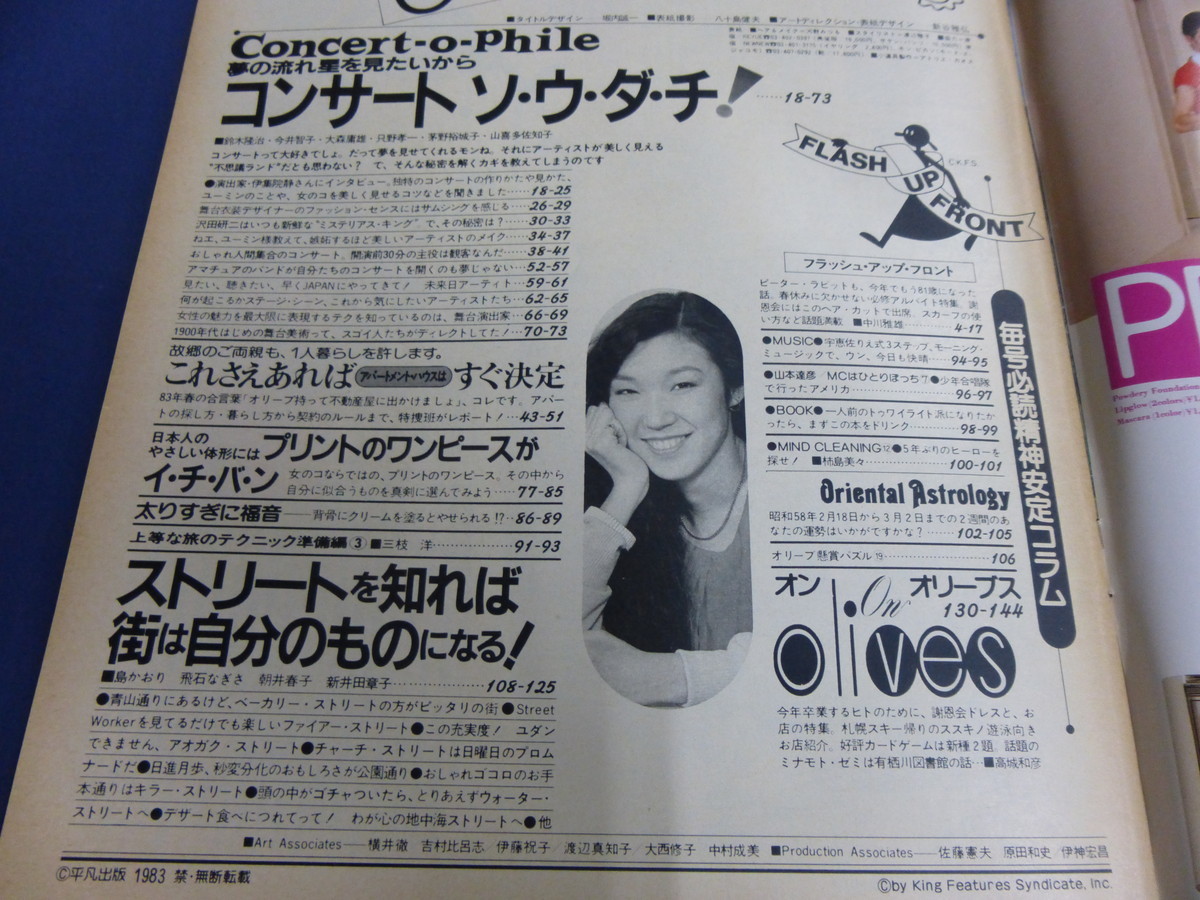 ■タイトルデザイン 堀内誠一 ■表紙撮影 八十島健夫 ■アートディレクション・表紙デザイン 新谷雅弘
Concert-o-Phile
夢の流れ星を見たいから
コンサート ソ・ウ・ダ・チ!……18-73
■鈴木隆治・今井智子・大森庸雄・只野孝一・茅野裕城子・山喜多佐知子
コンサートって大好きでしょ。だって夢を見せてくれるモンね。それにアーティストが美しく見える
“不思議ランド”だとも思わない? で、そんな秘密を解くカギを教えてしまうのです
●演出家・伊集院静さんにインタビュー。独特のコンサートの作りかたや見かた、
ユーミンのことや、女のコを美しく見せるコツなどを聞きました……18-25
舞台衣装デザイナーのファッション・センスにはサムシングを感じる……26-29
沢田研二はいつも新鮮な“ミステリアス・キング”で、その秘密は?……30-33
ねエ、ユーミン様教えて、嫉妬するほど美しいアーティストのメイク……34-37
おしゃれ人間集合のコンサート。開演前30分の主役は観客なんだ……38-41
アマチュアのバンドが自分たちのコンサートを開くのも夢じゃない…52-57
見たい、聴きたい、早くJAPANにやってきて! 未来日アーティト…59-61
何が起こるかステージ・シーン、これから気にしたいアーティストたち…62-65
女性の魅力を最大限に表現するテクを知っているのは、舞台演出家…66-69
1900年代はじめの舞台美術って、スゴイ人たちがディレクトしてた!…70-73
故郷のご両親も、1人暮らしを許します。
これさえあれば アパートメント・ハウスは すぐ決定
83年春の合言葉「オリーブ持って不動産屋に出かけましょ」、コレです。アパー
トの探し方・暮らし方から契約のルールまで、特捜班がレポート!…43-51
日本人の
やさしい体形には プリントのワンピースが
イ・チ・バ・ン 女のコならではの、プリントのワンピース。その中から
自分に似合うものを真剣に選んでみよう……77-85
太りすぎに福音——背骨にクリームを塗るとやせられる!?…86-89
上等な旅のテクニック準備編③ ■三枝 洋……………91-93
ストリートを知れば
街は自分のものになる!
■島かおり 飛石なぎさ 朝井春子 新井田章子……………108-125
●青山通りにあるけど、ベーカリー・ストリートの方がピッタリの街●Street
Workerを見てるだけでも楽しいファイアー・ストリート●この充実度! ユダン
できません、アオガク・ストリート●チャーチ・ストリートは日曜日のプロム
ナードだ●日進月歩、秒変分化のおもしろさが公園通り●おしゃれゴコロのお手
本通りはキラー・ストリート●頭の中がゴチャついたら、とりあえずウォーター・
ストリートへ●デザート食べにつれてって! わが心の地中海ストリートへ●他
FLASH
UP
FRONT
C.K.F.S.
フラッシュ・アップ・フロント
ピーター・ラビットも、今年でもう81歳になった
話。春休みに欠かせない必修アルバイト特集。謝
恩会にはこのヘア・カットで出席。スカーフの使
い方など話題満載 ■中川雅雄……4-17
●MUSIC●宇恵佐りえ式3ステップ、モーニング・
ミュージックで、ウン、今日も快晴……94-95
●山本達彦/MCはひとりぼっち⑦●少年合唱隊
で行ったアメリカ……96-97
●BOOK●一人前のトゥワイライト派になりたか
ったら、まずこの本をドリンク……98-99
●MIND CLEANING⑫●5年ぶりのヒーローを
探せ! ■柿島美々……100-101
Oriental Astrology
昭和58年2月18日から3月2日までの2週間のあ
なたの運勢はいかがですかな?……102-105
オリーブ懸賞パズル⑲……106
オン On オリーブス
130-144
olives
今年卒業するヒトのために、謝恩会ドレスと、お
店の特集。札幌スキー帰りのススキノ遊泳向き
お店紹介。好評カードゲームは新種2題。話題の
ミナモト・ゼミは有栖川図書館の話…■高城和彦
毎号必読精神安定コラム
■Art Associates—横井徹 吉村比呂志 伊藤祝子 渡辺真知子 大西修子 中村成美 ■Production Associates—佐藤憲夫 原田和史 伊神宏昌
©平凡出版 1983 禁・無断転載
©by King Features Syndicate, Inc.
P
Powdery Foundation
Lipglow/2colors/¥1,
Mascara/1color/¥1,